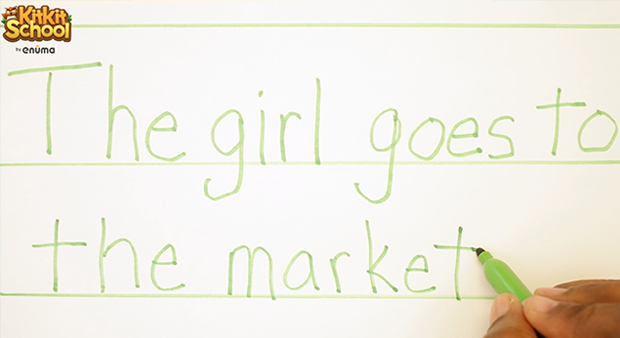 Kitkit
School
by enuma
The girl goes to
the market